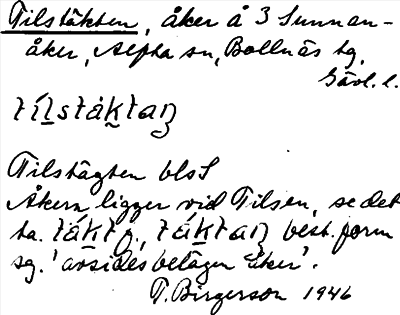 Tilstäkten, åker å 3 Sunnan-
åker, Alfta sn, Bollnäs tg,
Gävl. l.
Tilstägten bls S
Åkern ligger vid Tilsen, se det
ta. best. form
sg. 'avsides belägen åker'.
T. Birgerson 1946